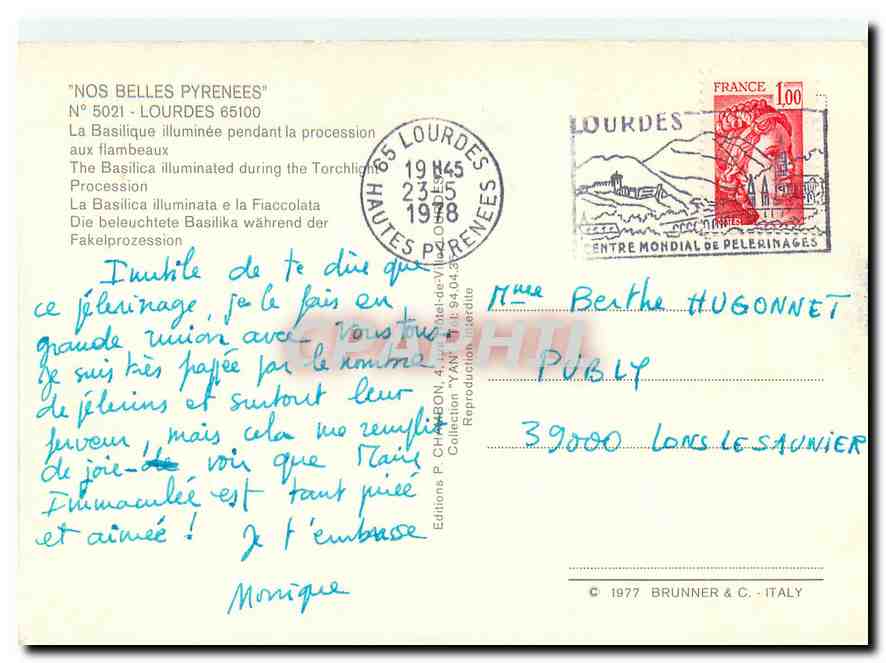 "NOS BELLES PYRENEES"
N° 5021 - LOURDES 65100
La Basilique illuminée pendant la procession
aux flambeaux
The Basilica illuminated during the Torchlight
Procession
La Basilica illuminata e la Fiaccolata
Die beleuchtete Basilika während der
Fakelprozession
65 LOURDES
19H45
23-5
1978
HAUTES PYRENEES
LOURDES
CENTRE MONDIAL DE PELERINAGES
FRANCE 1,00
POSTES
Inutile de te dire que
ce pélerinage, je le fais en
grande union avec vous tous.
Je suis très frappée par le nombre
de pélerins et surtout leur
ferveur, mais cela me remplit
de joie de voir que Marie
Immaculée est tant priée
et aimée ! Je t'embrasse
Monique
Editions P. CHAMBON, 4, rue Hôtel-de-Ville LOURDES
Collection "YAN" Tél. 94.04.3
Reproduction interdite
CPAPHIL
Mme Berthe HUGONNET
PUBLY
39000 LONS LE SAUNIER
© 1977 BRUNNER & C. - ITALY